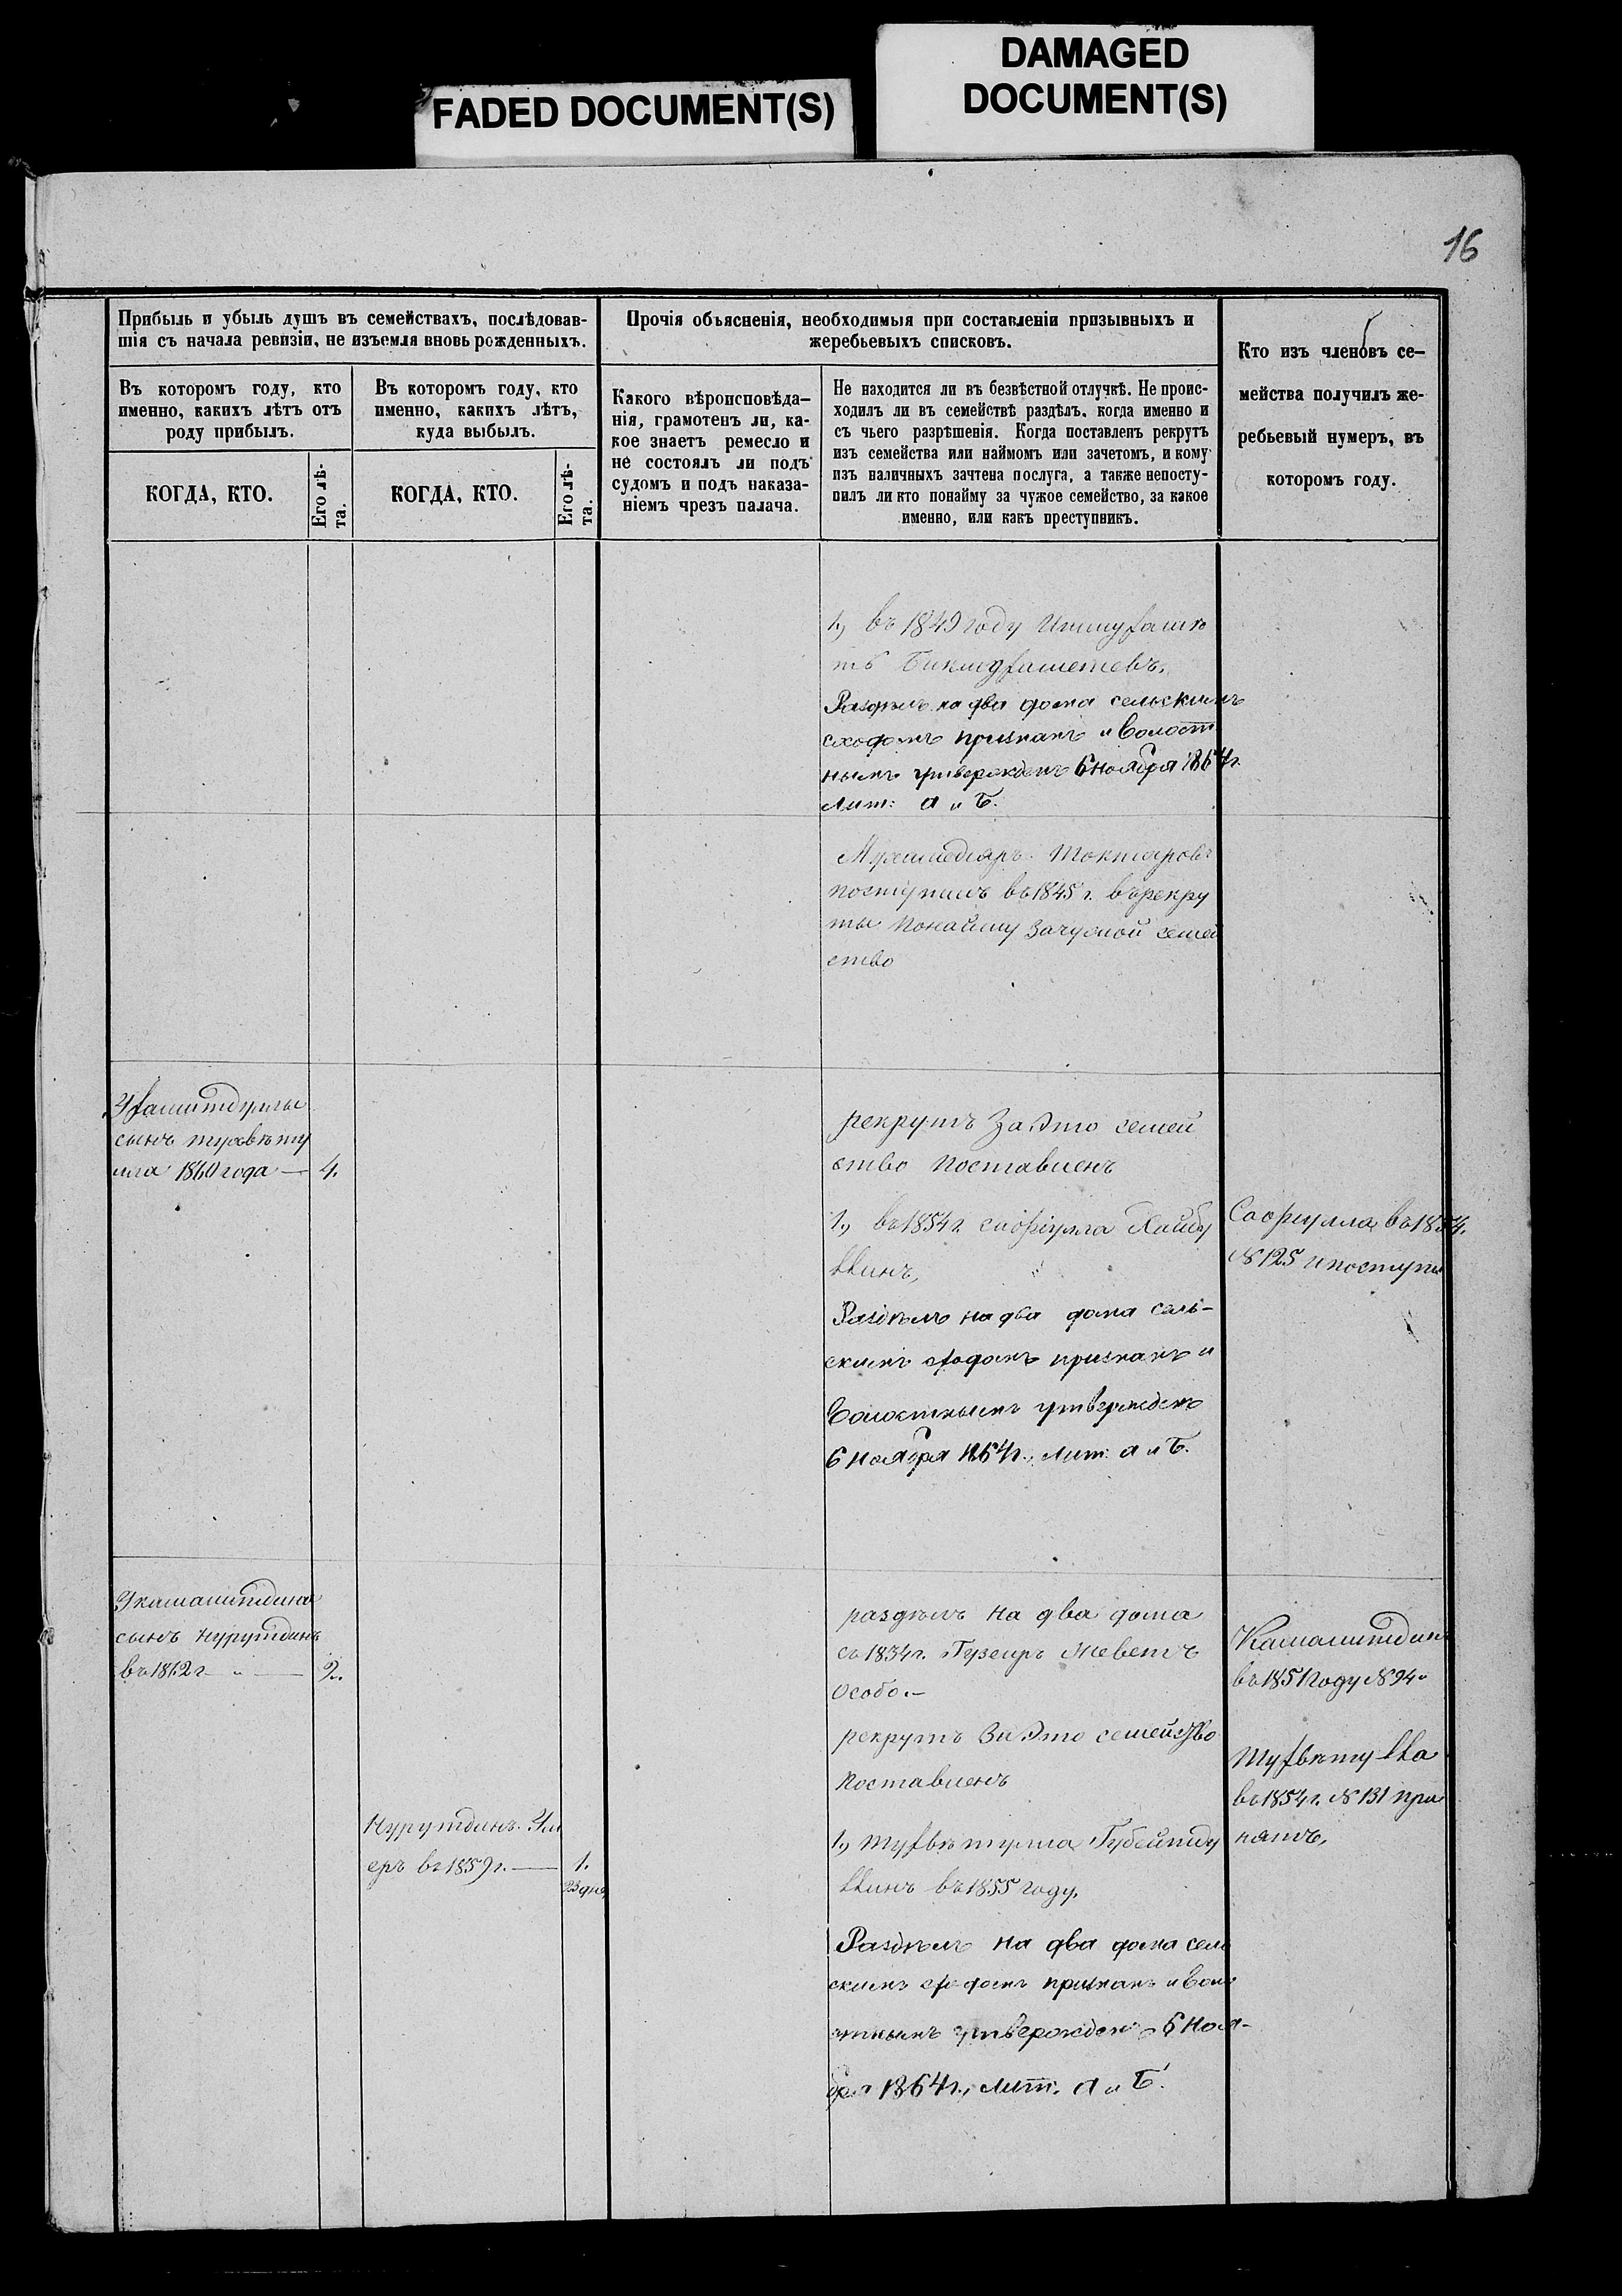 FADED DOCUMENT(S)
DAMAGED
DOCUMENT(S)
16
Прибыль и убыль душъ въ семействахъ, послѣдовав-
шія съ начала ревизіи, не изъемля вновь рожденныхъ.
Въ которомъ году, кто
именно, какихъ лѣтъ отъ
роду прибылъ.
КОГДА, КТО.
Его лѣ-
та.
Въ которомъ году, кто
именно, какихъ лѣтъ,
куда выбылъ.
КОГДА, КТО.
Его лѣ-
та.
Прочія объясненія, необходимыя при составленіи призывныхъ и
жеребьевыхъ списковъ.
Какого вѣроисповѣда-
нія, грамотенъ ли, ка-
кое знаетъ ремесло и
не состоялъ ли подъ
судомъ и подъ наказа-
ніемъ чрезъ палача.
Не находится ли въ безвѣстной отлучкѣ. Не проис-
ходилъ ли въ семействѣ раздѣлъ, когда именно и
съ чьего разрѣшенія. Когда поставленъ рекрутъ
изъ семейства или наймомъ или зачетомъ, и кому
изъ наличныхъ зачтена послуга, а также непосту-
пилъ ли кто понайму за чужое семейство, за какое
именно, или какъ преступникъ.
Кто изъ членовъ се-
мейства получилъ же-
ребьевый нумеръ, въ
которомъ году.
1, въ 1849 году
Раздѣлъ на два дома сельскимъ
сходомъ признанъ и Волост
нымъ утвержденъ 6 Ноября 1864 г.
Лит: А и Б.
Мухамедяръ Токтаровъ
поступилъ въ 1845 г. въ рекру
ты понайму зачужой семей
ство
сынъ
1860 года — 4.
рекрутъ За Это семей
ство Поставленъ
1, въ 1854 г.
Раздѣлъ на два дома сель-
скимъ сходомъ признанъ и
Волостнымъ утвержденъ
6 Ноября 1864 г., Лит: А и Б.
въ 1854.
№ 125 и поступи
сынъ Нурутдинъ
въ 1862 г. — 2.
Нурутдинъ
въ 1859 г. — 1.
23 дня
раздѣлъ на два дома
съ 1834 г. живетъ
Особо.—
рекрутъ За Это семейство
Поставленъ
1,
въ 1855 году.
Раздѣлъ на два дома сель
скимъ сходомъ признанъ и Воло
стнымъ утвержденъ 6 Ноя-
бря 1864 г., Лит. А и Б.
Камалитдин
въ 1851 году № 94
въ 1854 г. № 131 при
нятъ,